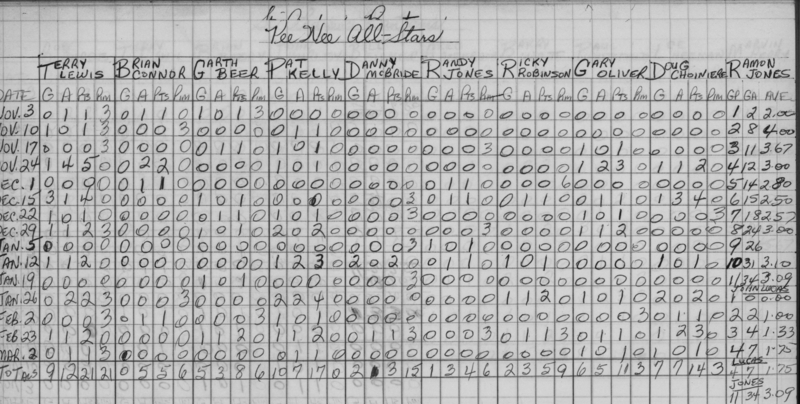 Pee Wee All-Stars
TERRY BRIAN GARTH PAT DANNY RANDY RICKY GARY DOUG RAMON
LEWIS CONNOR BEER KELLY McBRIDE JONES ROBINSON OLIVER CHOINIERE JONES
DATE G A Pts Pim G A Pts Pim G A Pts Pim G A Pts Pim G A Pts Pim G A Pts Pim G A Pts Pim G A Pts Pim G A Pts Pim GP GA AVE.
NOV. 3 0 1 1 3 0 1 1 0 1 0 1 3 0 0 0 0 0 0 0 0 0 0 0 0 0 0 0 0 1 2 2.00
NOV. 10 1 0 1 3 0 0 0 3 0 1 1 0 0 0 0 0 0 0 0 0 0 0 0 0 2 8 4.00
NOV. 17 0 0 0 3 0 0 0 0 0 1 1 0 1 0 1 0 0 0 0 0 0 0 0 3 0 0 0 0 1 0 1 0 0 0 0 0 3 11 3.67
NOV. 24 1 4 5 0 0 2 2 0 0 0 0 0 1 0 1 0 0 0 0 0 0 0 0 0 0 0 0 0 1 2 3 0 1 1 2 0 4 12 3.00
DEC. 1 0 0 9 0 0 1 1 0 0 0 0 0 0 0 0 0 0 0 0 0 0 1 1 0 0 0 0 6 0 0 0 0 0 0 0 0 5 14 2.80
DEC. 15 3 1 4 0 0 0 0 0 1 0 1 0 0 0 0 3 0 1 1 0 0 0 0 0 0 1 1 0 1 3 4 0 6 15 2.50
DEC. 22 1 0 1 0 0 0 0 0 0 1 1 0 1 0 1 0 0 0 0 3 0 0 0 0 1 0 1 0 0 0 0 3 7 18 2.57
DEC. 29 1 1 2 3 0 0 0 0 1 0 1 0 2 0 2 0 0 0 0 0 0 0 0 3 0 0 0 0 1 1 2 0 0 0 0 0 8 24 3.00
JAN. 5 0 0 0 0 0 0 0 0 0 0 0 0 0 0 0 0 0 0 0 3 1 0 1 0 0 0 0 0 0 0 0 0 0 0 0 0 9 26
JAN. 12 1 1 2 0 0 0 0 0 0 0 0 0 1 2 3 0 2 0 2 0 0 1 1 0 1 0 1 0 0 0 0 0 1 0 1 0 10 31 3.10
JAN. 19 1 0 1 0 0 0 0 3 0 0 0 0 0 0 0 0 0 0 0 0 11 34 3.09
JOHN LUCAS
JAN. 26 0 2 2 3 0 0 0 3 0 0 0 0 2 2 4 0 0 0 0 0 0 0 0 0 1 1 2 0 1 0 1 0 2 0 2 0 1 0 0.00
FEB. 2 0 0 0 3 0 1 1 0 0 0 0 3 1 0 1 0 0 0 0 0 0 0 0 0 0 0 0 0 0 0 0 3 0 1 1 0 2 2 1.00
FEB. 23 1 1 2 0 0 0 0 0 1 1 2 0 1 1 2 0 0 1 1 3 0 0 0 3 0 1 1 3 0 1 1 0 1 2 3 0 3 4 1.33
MAR. 2 0 1 1 3 0 0 0 0 0 0 0 0 0 1 1 0 0 0 0 0 0 0 0 0 0 0 0 0 1 0 1 0 1 0 1 0 4 7 1.75
LUCAS
TOTALS 9 12 21 21 0 5 5 6 5 3 8 6 10 7 17 0 2 1 3 15 1 3 4 6 2 3 5 9 6 5 11 3 7 7 14 3 4 7 1.75
JONES
11 34 3.09